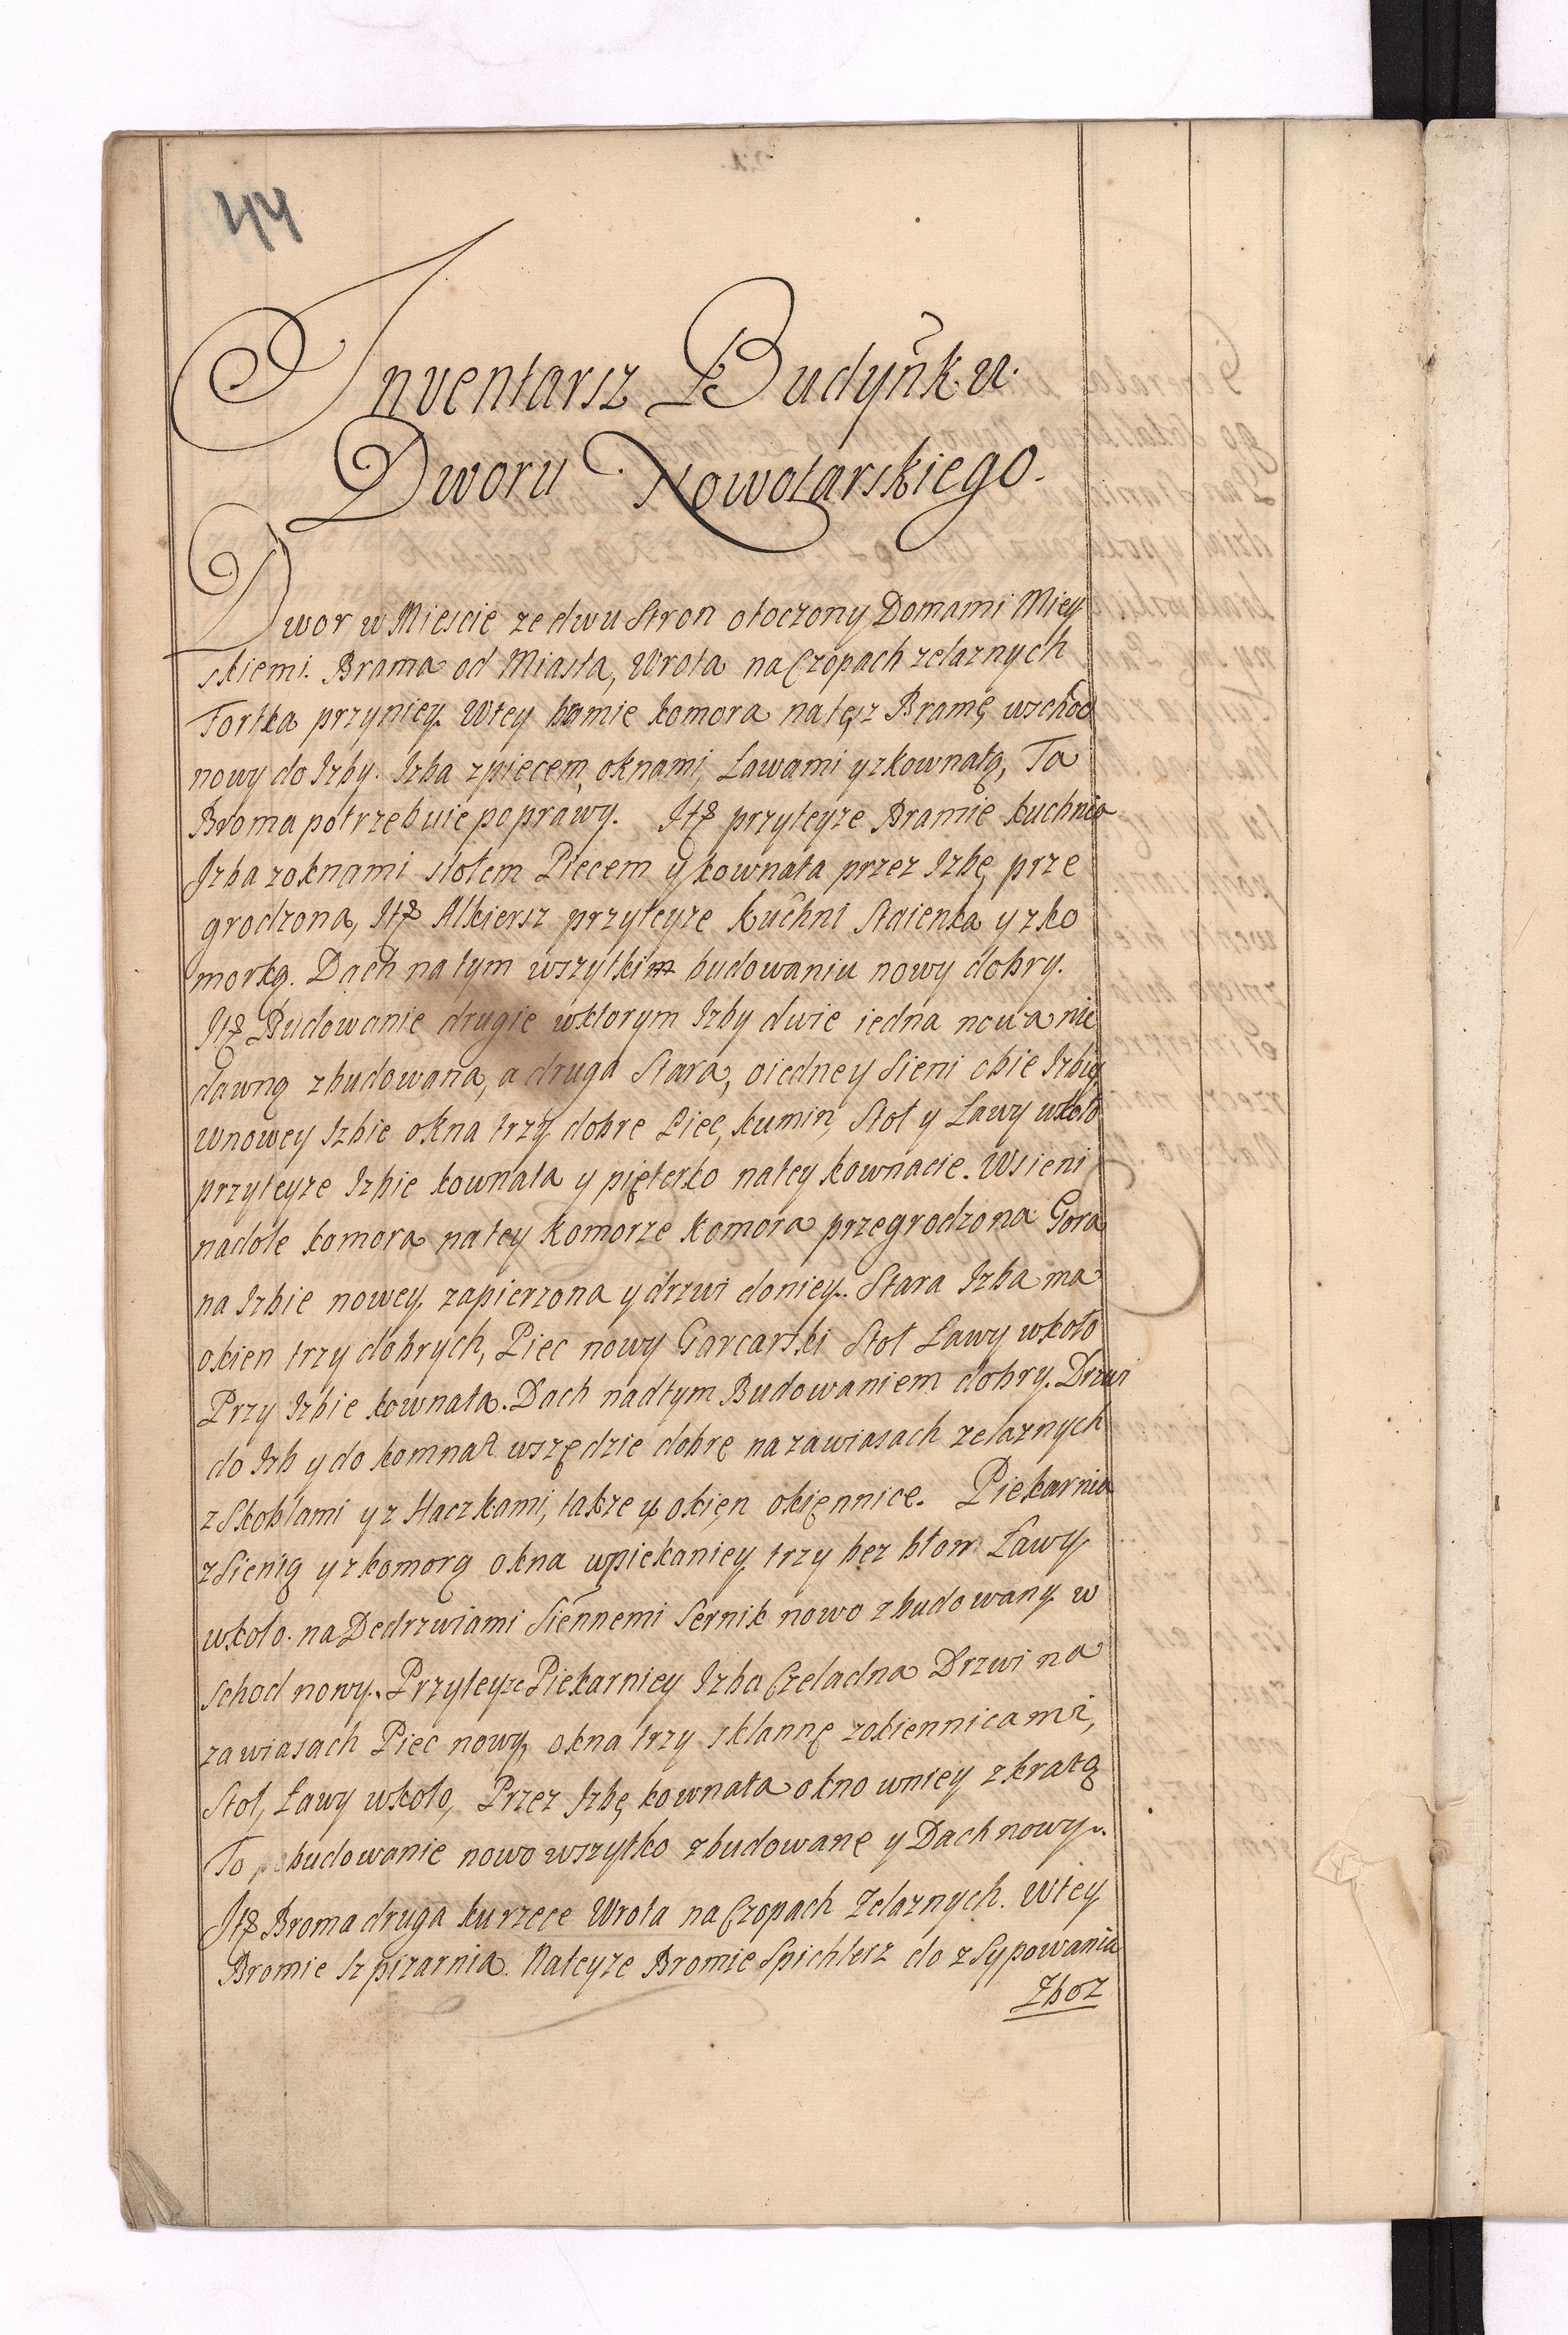 44
Inventarsz Budyńku
Dworu Nowotarskiego.
Dwor w Miescie ze dwu Stron otoczony Domami Miey
skiemi. Brama od Miasta, Wrota na Czopach zelaznych
Fortka przyniey. Wtey bamie komora natęsz Bramę wschod
nowy do Izby. Izba zpiecem, oknami, Ławami yzkownatą, Ta
Broma potrzebuie poprawy. Itę przyteyze Bramie kuchnia
Izba zoknami stołem Piecem y kownata przez Izbę prze
grodzona, Itę Alkiersz przyteyze Kuchni Staienka y zko
morką. Dach natym wszytkim budowaniu nowy dobry.
Itę Budowanie drugie wktorym Izby dwie iedna nowa nie
dawną zbudowana, a druga Stara, oiedney Sieni obie Izbię
wnowey Izbie okna trzy dobre Piec, kumin, Stoł y Ławy wkoło
przyteyze Izbie kownata y pięterko natey kownacie. Wsieni
nadole komora natey Komorze Komora przegrodzona Gora
na Izbie nowey zapierzona y drzwi doniey. Stara Izba ma
okien trzy dobrych, Piec nowy Garcarski Stoł Ławy wkoło
Przy Izbie kownata. Dach nadtym Budowaniem dobry. Drzwi
do Izb y do komnat wszędzie dobrę na zawiasach zelaznych
z Skoblami y z Haczkami, takze y okięn okięnnice. Piekarnia
z Sienią y z komorą okna wpiekaniey trzy bez błom Ławy
wkoło. na Dedrzwiami Siennemi Sernik nowo zbudowany w
schod nowy. Przyteyze Piekarniey Izba Czeladna Drzwi na
zawiasach Piec nowy, okna trzy sklannę zokiennicami,
Stoł, Ławy wkoło, Przez Izbę kownata okno wniey z kratą
To budowanie nowo wszytko zbudowanę y Dach nowy.
Itę Broma druga kurzece Wrota na Czopach Zelaznych. Wtey
Bromie Szpizarnia. Nateyze Bromie Spichlerz do zsypowania
Zboz